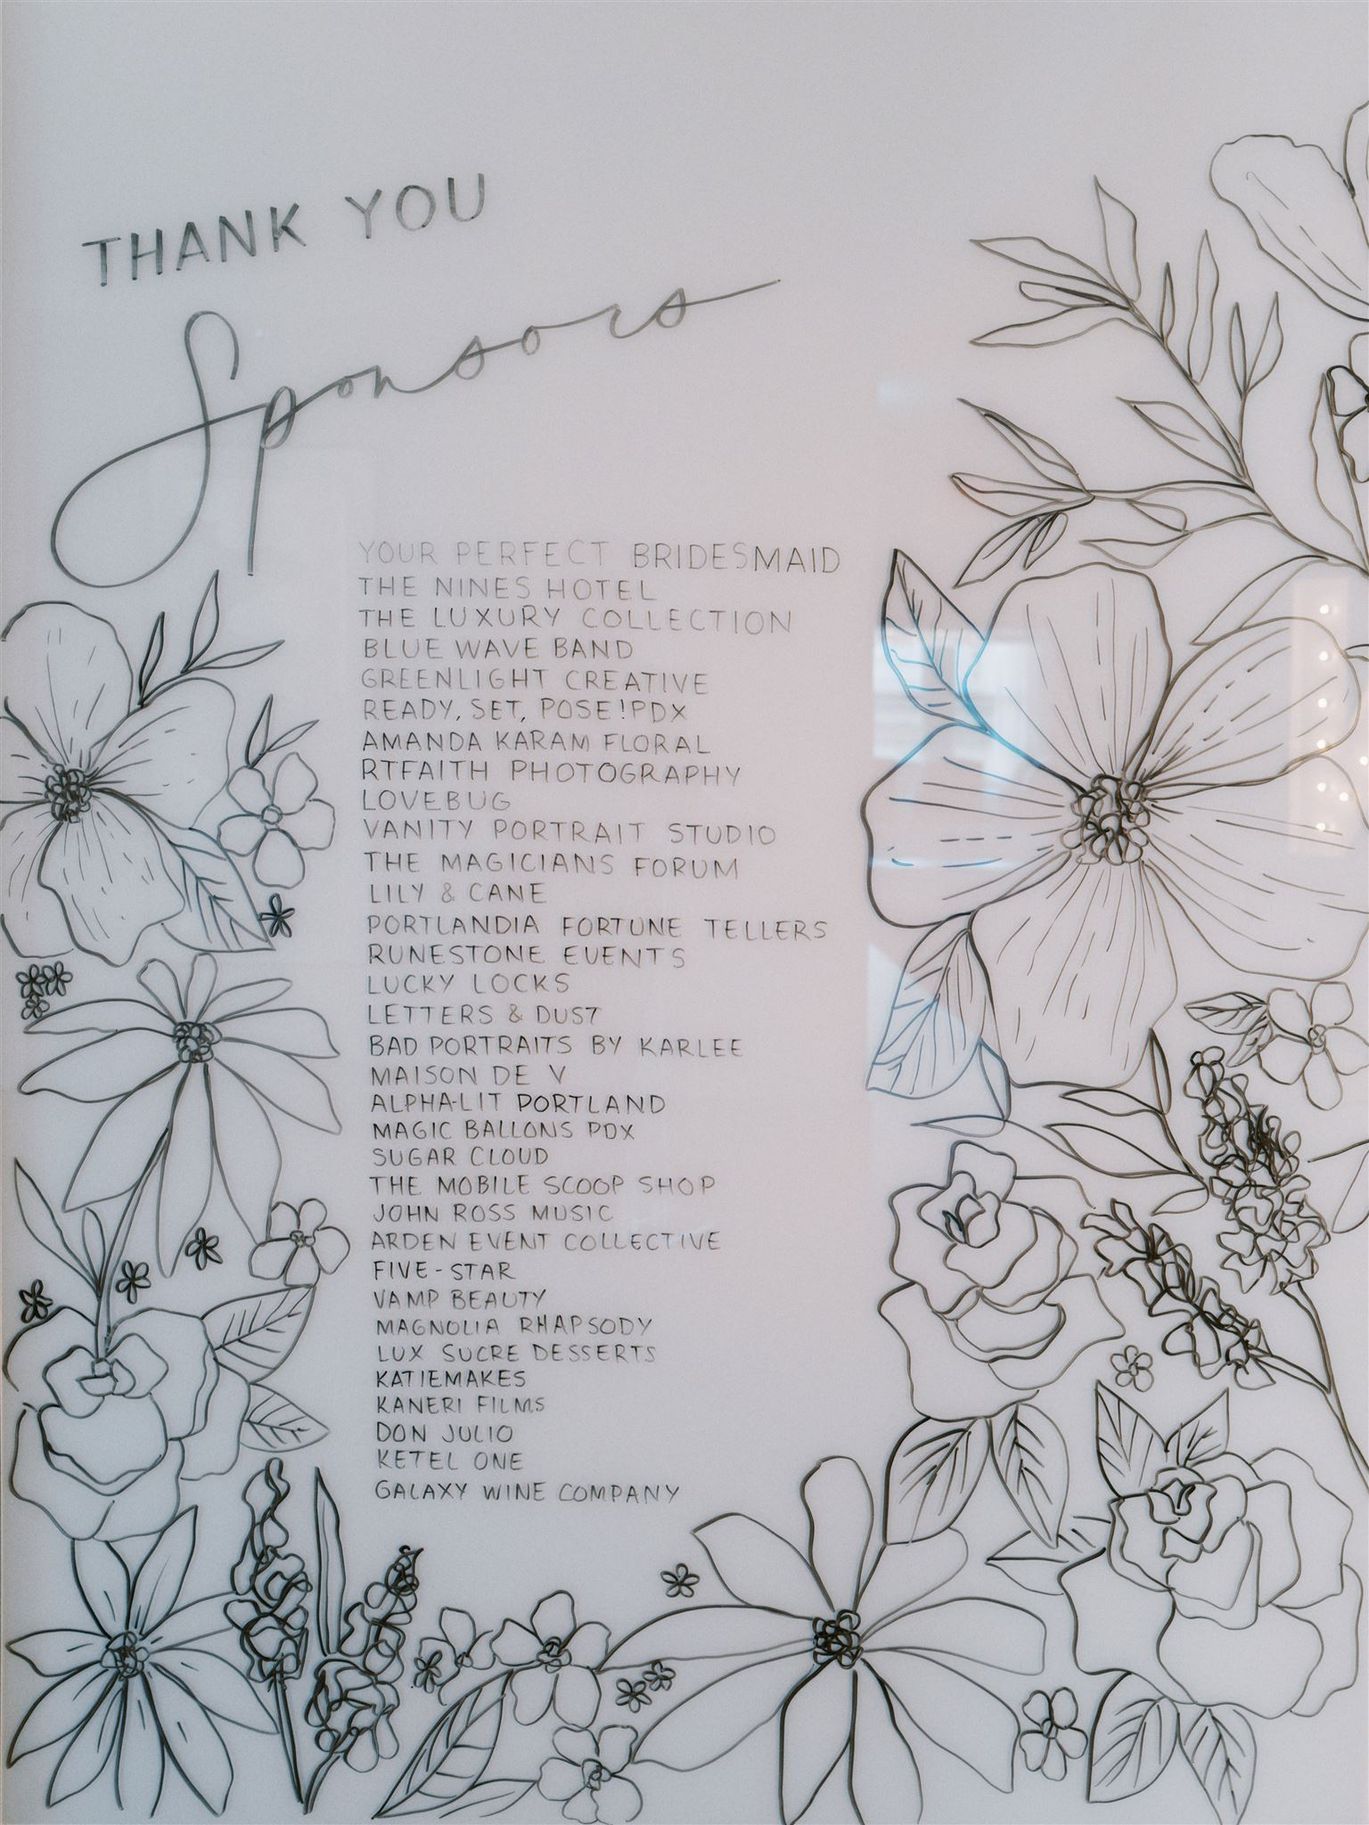 THANK YOU
Sponsors
YOUR PERFECT BRIDESMAID
THE NINES HOTEL
THE LUXURY COLLECTION
BLUE WAVE BAND
GREENLIGHT CREATIVE
READY, SET, POSE!PDX
AMANDA KARAM FLORAL
RTFAITH PHOTOGRAPHY
LOVEBUG
VANITY PORTRAIT STUDIO
THE MAGICIANS FORUM
LILY & CANE
PORTLANDIA FORTUNE TELLERS
RUNESTONE EVENTS
LUCKY LOCKS
LETTERS & DUST
BAD PORTRAITS BY KARLEE
MAISON DE V
ALPHA-LIT PORTLAND
MAGIC BALLONS PDX
SUGAR CLOUD
THE MOBILE SCOOP SHOP
JOHN ROSS MUSIC
ARDEN EVENT COLLECTIVE
FIVE-STAR
VAMP BEAUTY
MAGNOLIA RHAPSODY
LUX SUCRE DESSERTS
KATIEMAKES
KANERI FILMS
DON JULIO
KETEL ONE
GALAXY WINE COMPANY